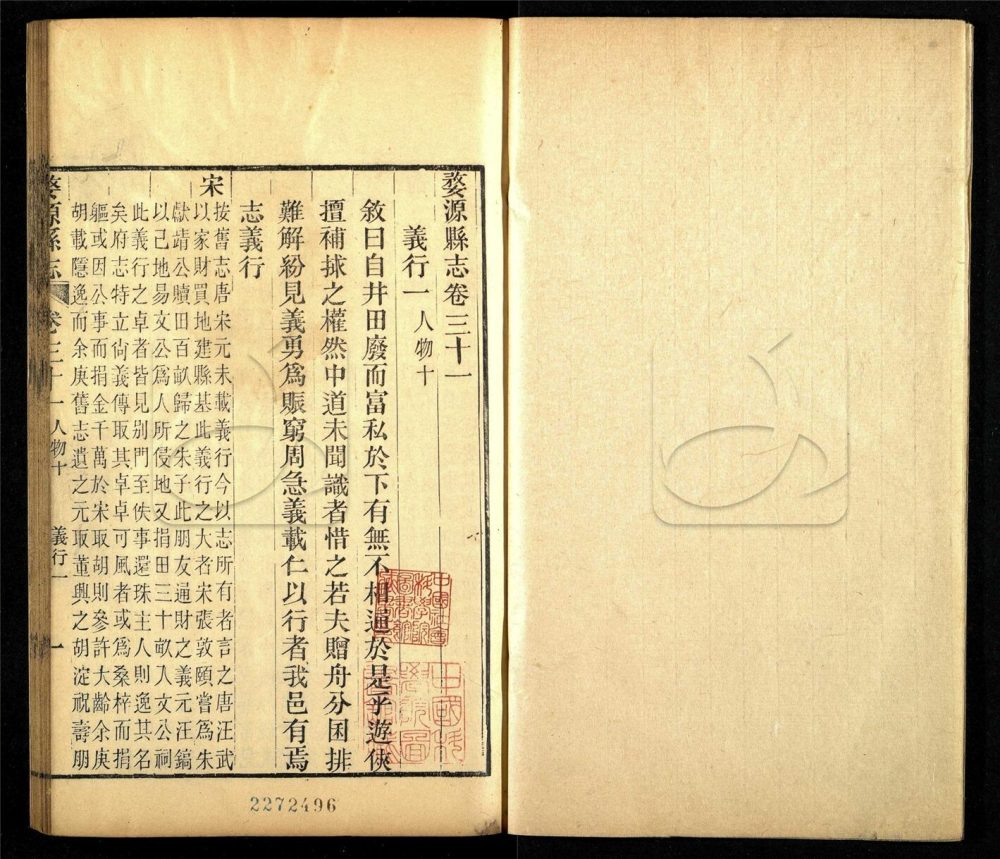 婺源縣志卷三十一
義行一 人物十
敘曰自井田廢而富私於下有無不相通於是乎遊俠
擅補捄之權然中道未聞識者惜之若夫贈舟分囷排
難解紛見義勇為賑窮周急義載仁以行者我邑有焉
志義行
宋
按舊志唐宋元未載義行今以志所有者言之唐汪武
以家財買地建縣基此義行之大者宋張敦頤嘗為朱
獻靖公贖田百畝歸之朱子此朋友通財之義元汪鎬
以己地易文公為人所侵地又捐田三十畝入文公祠
此義行之卓者皆見別門至佚事還珠主人則逸其名
矣府志特立尚義傳取其卓卓可風者或為桑梓而捐
軀或因公事而捐金千萬於宋取胡則參許大齡余庚
胡載隱逸而余庚舊志遺之元取董興之胡淀祝壽朋
婺源縣志 卷三十一 人物十 義行一 一
2272496